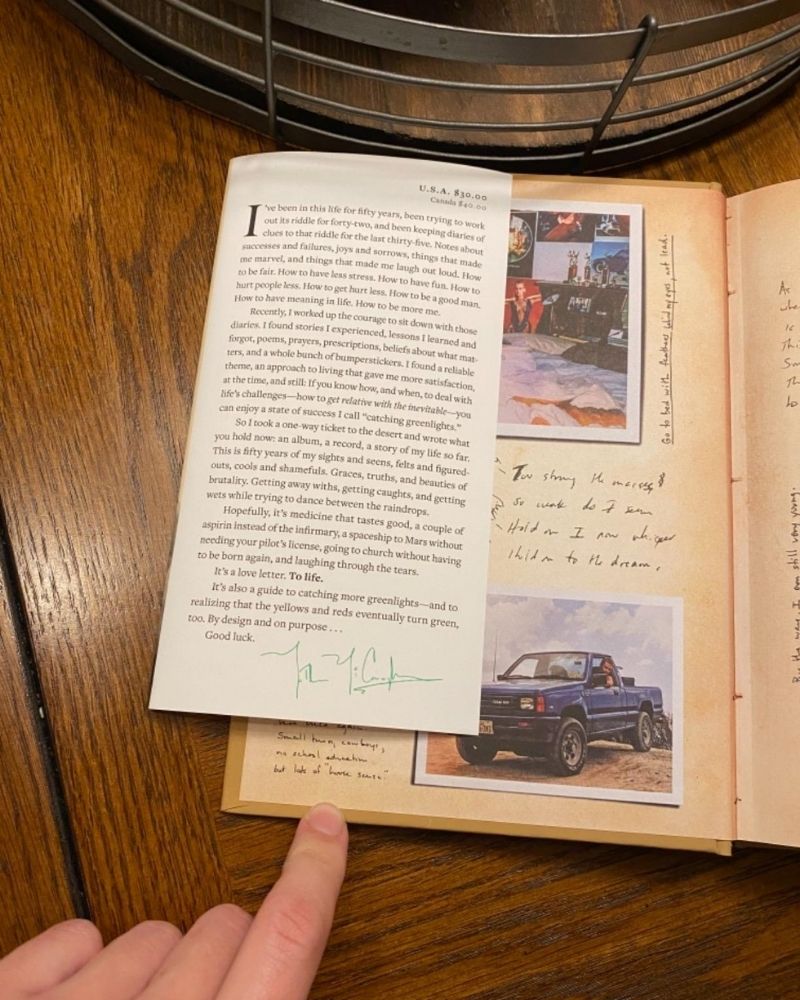 U.S.A. $30.00
Canada $40.00
I've been in this life for fifty years, been trying to work
out its riddle for forty-two, and been keeping diaries of
clues to that riddle for the last thirty-five. Notes about
successes and failures, joys and sorrows, things that made
me marvel, and things that made me laugh out loud. How
to be fair. How to have less stress. How to have fun. How to
hurt people less. How to get hurt less. How to be a good man.
How to have meaning in life. How to be more me.
Recently, I worked up the courage to sit down with those
diaries. I found stories I experienced, lessons I learned and
forgot, poems, prayers, prescriptions, beliefs about what mat-
ters, and a whole bunch of bumperstickers. I found a reliable
theme, an approach to living that gave me more satisfaction,
at the time, and still: If you know how, and when, to deal with
life's challenges—how to get relative with the inevitable—you
can enjoy a state of success I call "catching greenlights."
So I took a one-way ticket to the desert and wrote what
you hold now: an album, a record, a story of my life so far.
This is fifty years of my sights and seens, felts and figured-
outs, cools and shamefuls. Graces, truths, and beauties of
brutality. Getting away withs, getting caughts, and getting
wets while trying to dance between the raindrops.
Hopefully, it's medicine that tastes good, a couple of
aspirin instead of the infirmary, a spaceship to Mars without
needing your pilot's license, going to church without having
to be born again, and laughing through the tears.
It's a love letter. To life.
It's also a guide to catching more greenlights—and to
realizing that the yellows and reds eventually turn green,
too. By design and on purpose . . .
Good luck.
Go to bed with feathers behind my eyes, not lead.
Too strong the
so weak do I seem
Hold on I now whisper
Hold on to the dream.
again
Small town, cowboys,
no school education
but lots of "horse sense."
As
is
Thi
to
By the way, I am still very young.